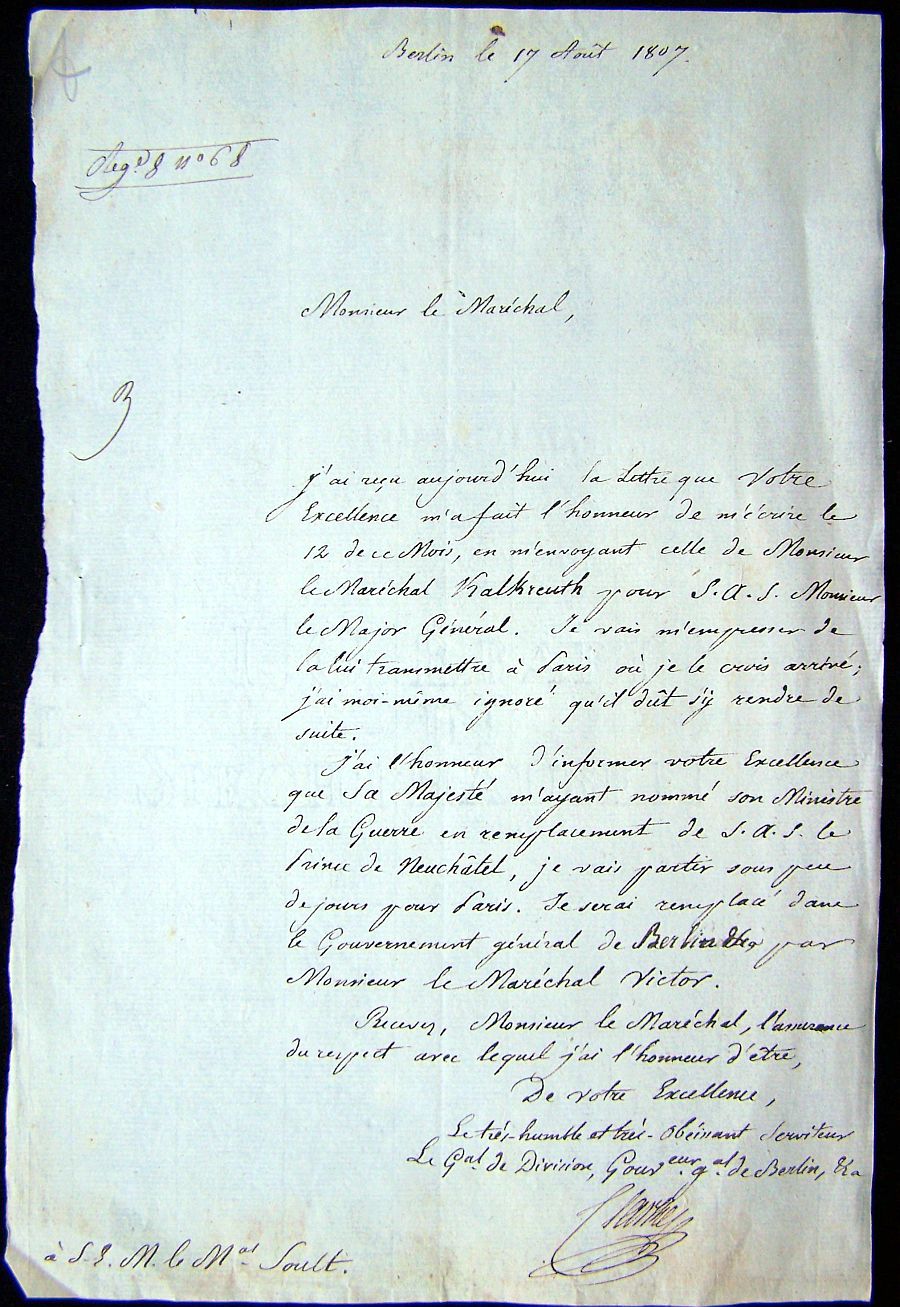 Berlin le 17 Août 1807.
Reg.é 8 nº 68
Monsieur le Maréchal,
j'ai reçu aujourd'hui la Lettre que Votre
Excellence m'a fait l'honneur de m'écrire le
12 de ce Mois, en m'envoyant celle de Monsieur
le Maréchal Kalkreuth pour S. A. S. Monsieur
le Major Général. Je vais m'empresser de
la lui transmettre à Paris où je le crois arrivé;
j'ai moi-même ignoré qu'il dût s'y rendre de
suite.
j'ai l'honneur d'informer votre Excellence
que Sa Majesté m'ayant nommé son Ministre
de la Guerre en remplacement de S. A. S. le
Prince de Neuchâtel, je vais partir sous peu
de jours pour Paris. Je serai remplacé dans
le Gouvernement général de Berlin &a par
Monsieur le Maréchal Victor.
Recevez, Monsieur le Maréchal, l'assurance
du respect avec lequel j'ai l'honneur d'être,
De votre Excellence,
Le très-humble et très-Obéissant Serviteur
Le Gal. de Division, Gouveur. gal. de Berlin, &a
Clarke
à S. E. M. le Mal. Soult.